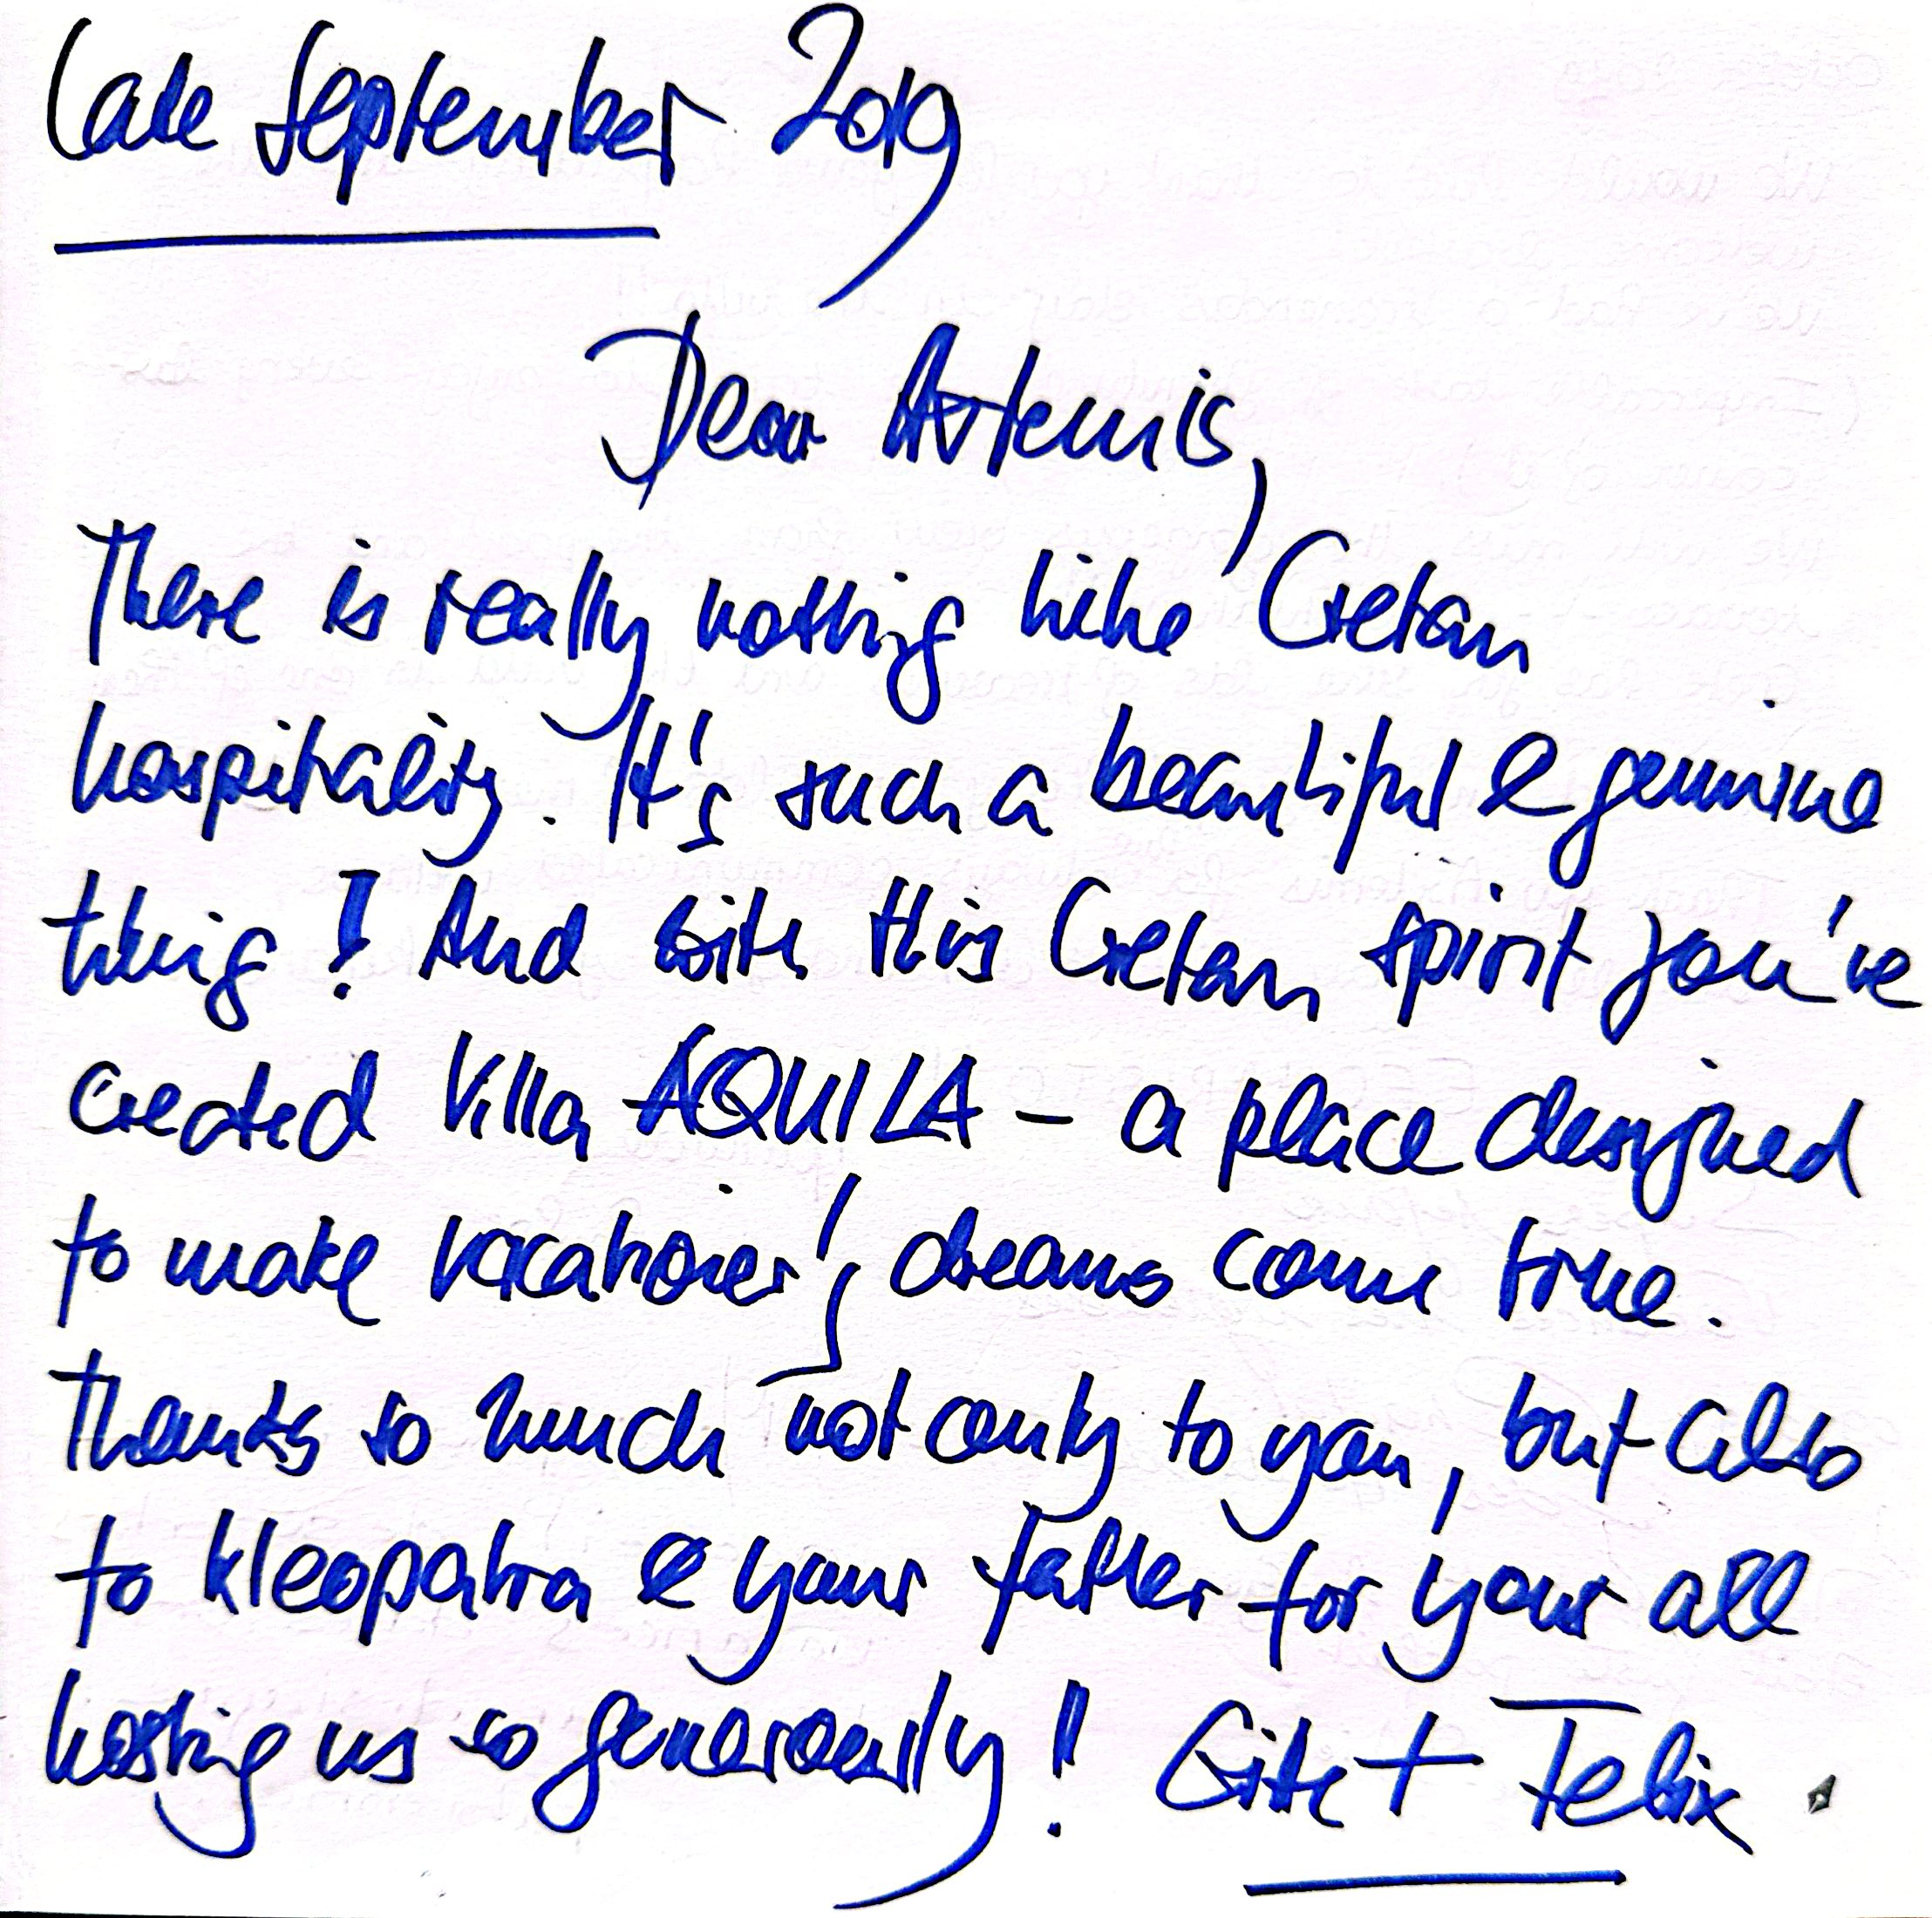 Late September 2019
Dear Artemis,
There is really nothing like Cretan
hospitality. It's such a beautiful & genuine
thing! And with this Cretan spirit you've
created Villa AQUILA - a place designed
to make vacationers' dreams come true.
Thanks so much not only to you, but also
to Kleopatra & your father for your all
hosting us so generously! Gitte + Felix